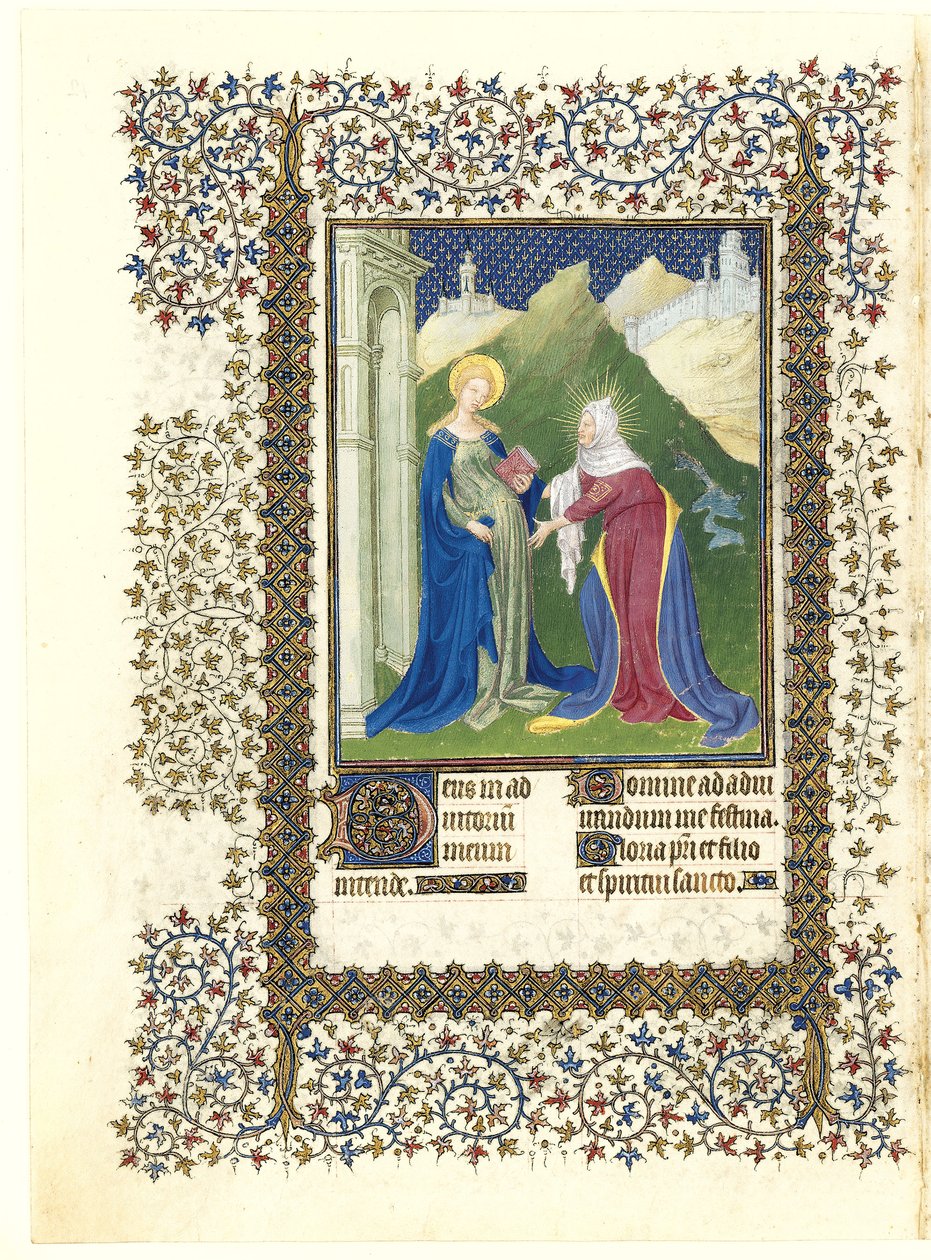 Deus in ad
iutoriū
meum
intende.
Domine ad adiu
uandum me festina.
Gloria pri et filio
et spiritui sancto.